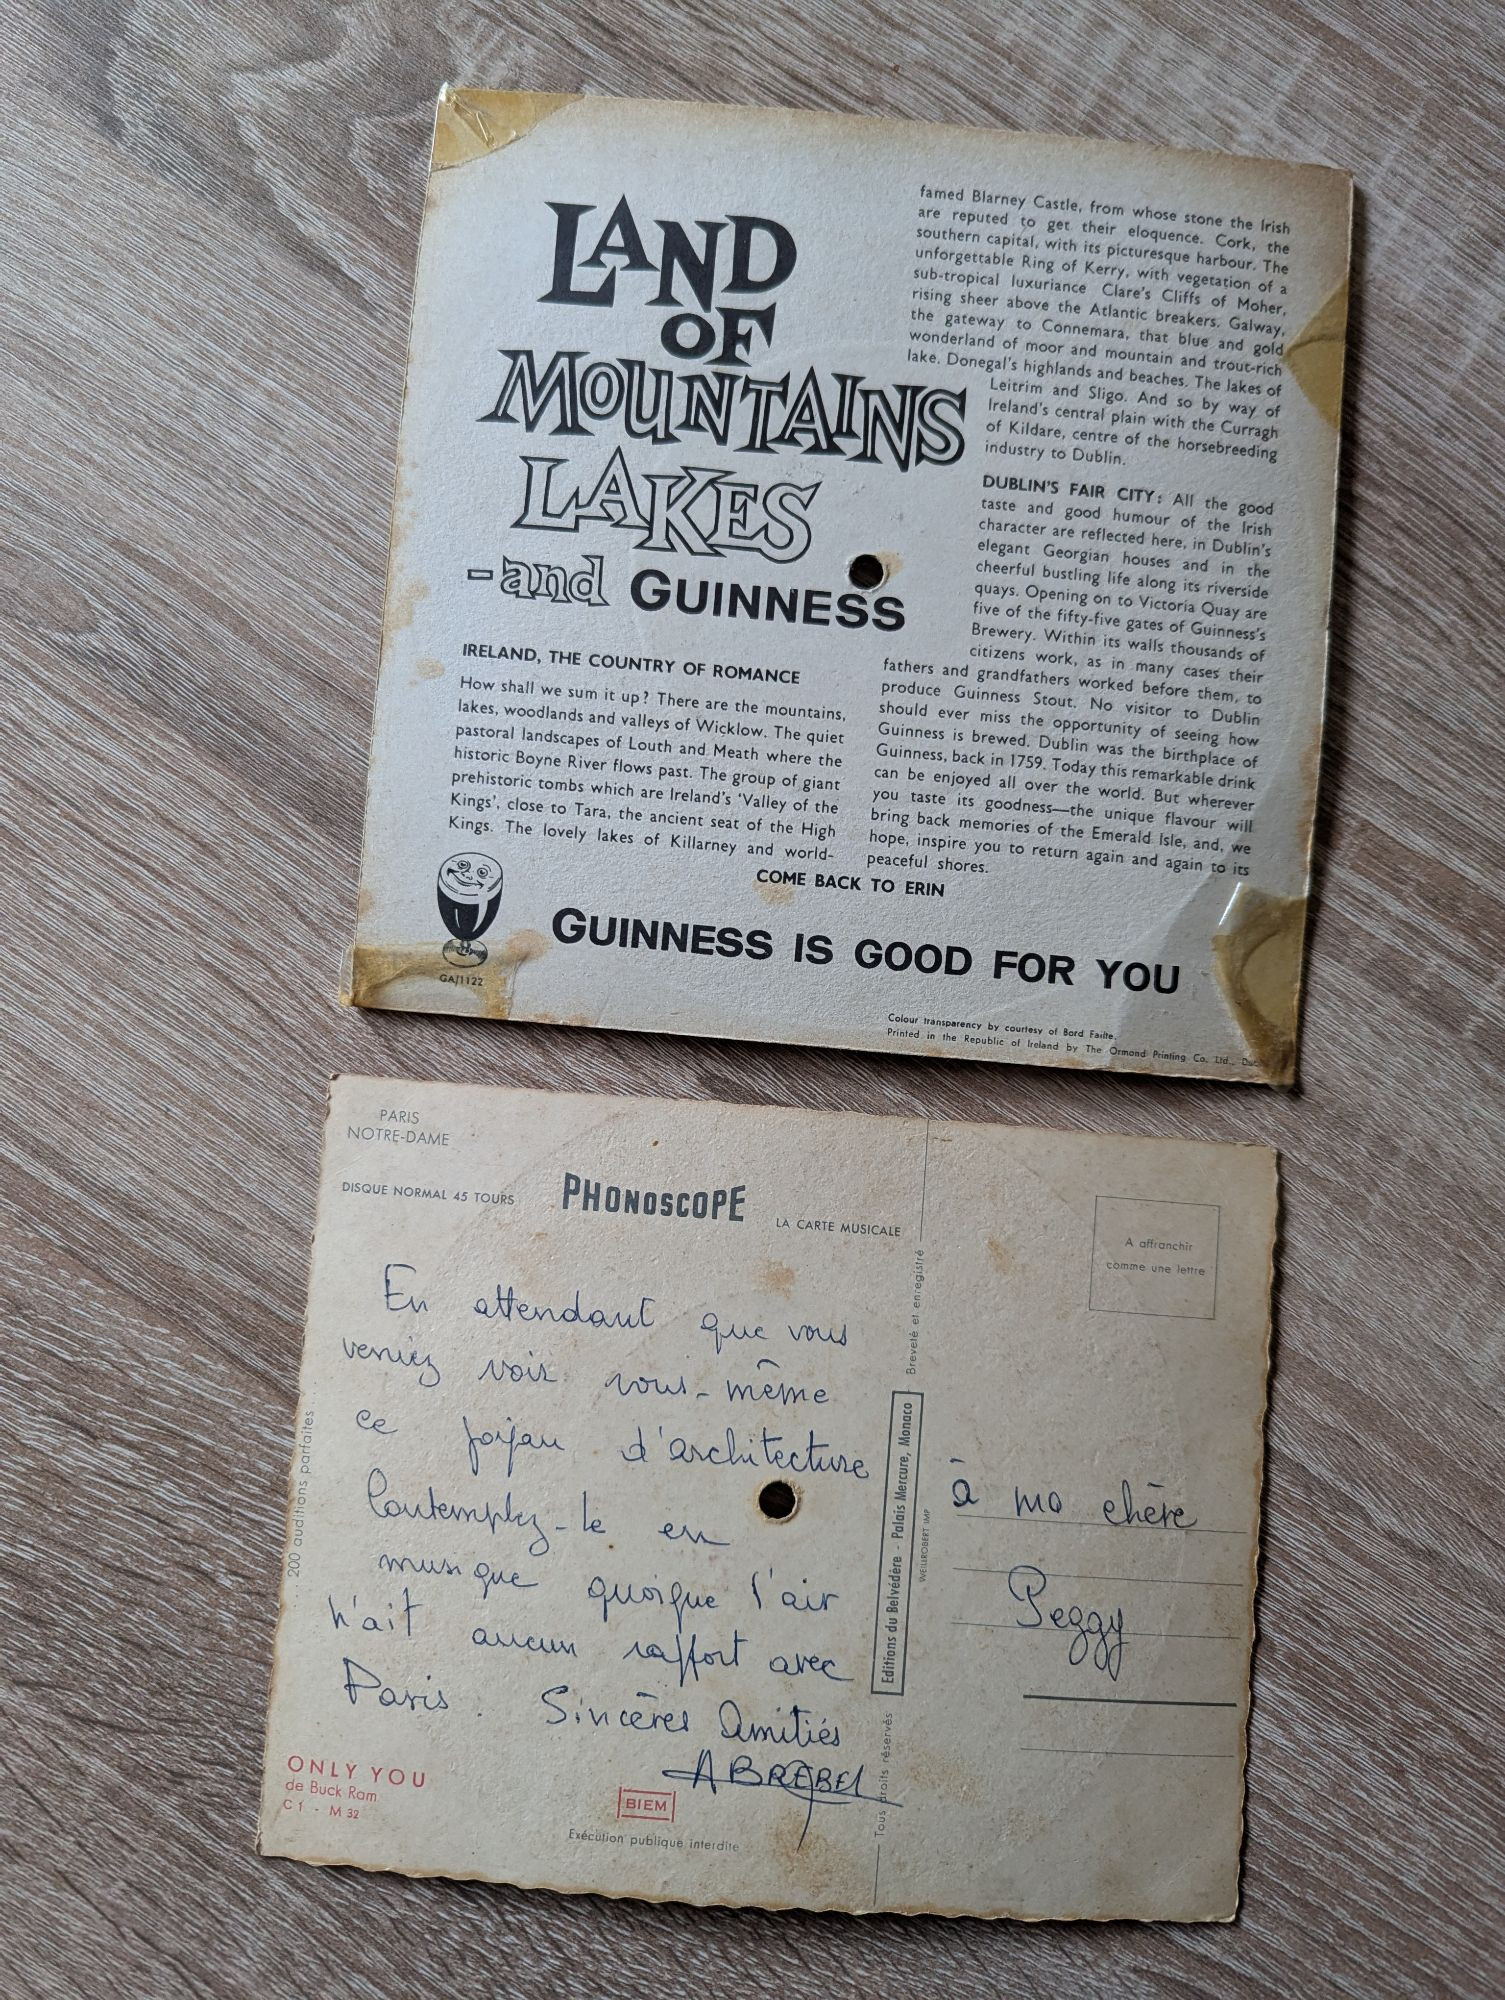 LAND
OF
MOUNTAINS
LAKES
-and GUINNESS
IRELAND, THE COUNTRY OF ROMANCE
How shall we sum it up? There are the mountains,
lakes, woodlands and valleys of Wicklow. The quiet
pastoral landscapes of Louth and Meath where the
historic Boyne River flows past. The group of giant
prehistoric tombs which are Ireland's 'Valley of the
Kings', close to Tara, the ancient seat of the High
Kings. The lovely lakes of Killarney and world-
famed Blarney Castle, from whose stone the Irish
are reputed to get their eloquence. Cork, the
southern capital, with its picturesque harbour. The
unforgettable Ring of Kerry, with vegetation of a
sub-tropical luxuriance Clare's Cliffs of Moher,
rising sheer above the Atlantic breakers. Galway,
the gateway to Connemara, that blue and gold
wonderland of moor and mountain and trout-rich
lake. Donegal's highlands and beaches. The lakes of
Leitrim and Sligo. And so by way of
Ireland's central plain with the Curragh
of Kildare, centre of the horsebreeding
industry to Dublin.
DUBLIN'S FAIR CITY: All the good
taste and good humour of the Irish
character are reflected here, in Dublin's
elegant Georgian houses and in the
cheerful bustling life along its riverside
quays. Opening on to Victoria Quay are
five of the fifty-five gates of Guinness's
Brewery. Within its walls thousands of
citizens work, as in many cases their
fathers and grandfathers worked before them, to
produce Guinness Stout. No visitor to Dublin
should ever miss the opportunity of seeing how
Guinness is brewed. Dublin was the birthplace of
Guinness, back in 1759. Today this remarkable drink
can be enjoyed all over the world. But wherever
you taste its goodness—the unique flavour will
bring back memories of the Emerald Isle, and, we
hope, inspire you to return again and again to its
peaceful shores.
COME BACK TO ERIN
GA/1122
GUINNESS IS GOOD FOR YOU
Colour transparency by courtesy of Bord Failte.
Printed in the Republic of Ireland by The Ormond Printing Co. Ltd.,
PARIS
NOTRE-DAME
DISQUE NORMAL 45 TOURS
PHONOSCOPE
LA CARTE MUSICALE
A affranchir
comme une lettre
En attendant que vous
veniez voir vous-même
ce joijau d'architecture
Contemplez-le en
musique quoique l'air
n'ait aucun rapport avec
Paris. Sincères Amitiés
200 auditions parfaites
Tous droits réservés
Editions du Belvédère - Palais Mercure, Monaco
Breveté et enregistré
WEILLROBERT IMP
à ma chère
Peggy
ONLY YOU
de Buck Ram
C 1 - M 32
BIEM
Exécution publique interdite